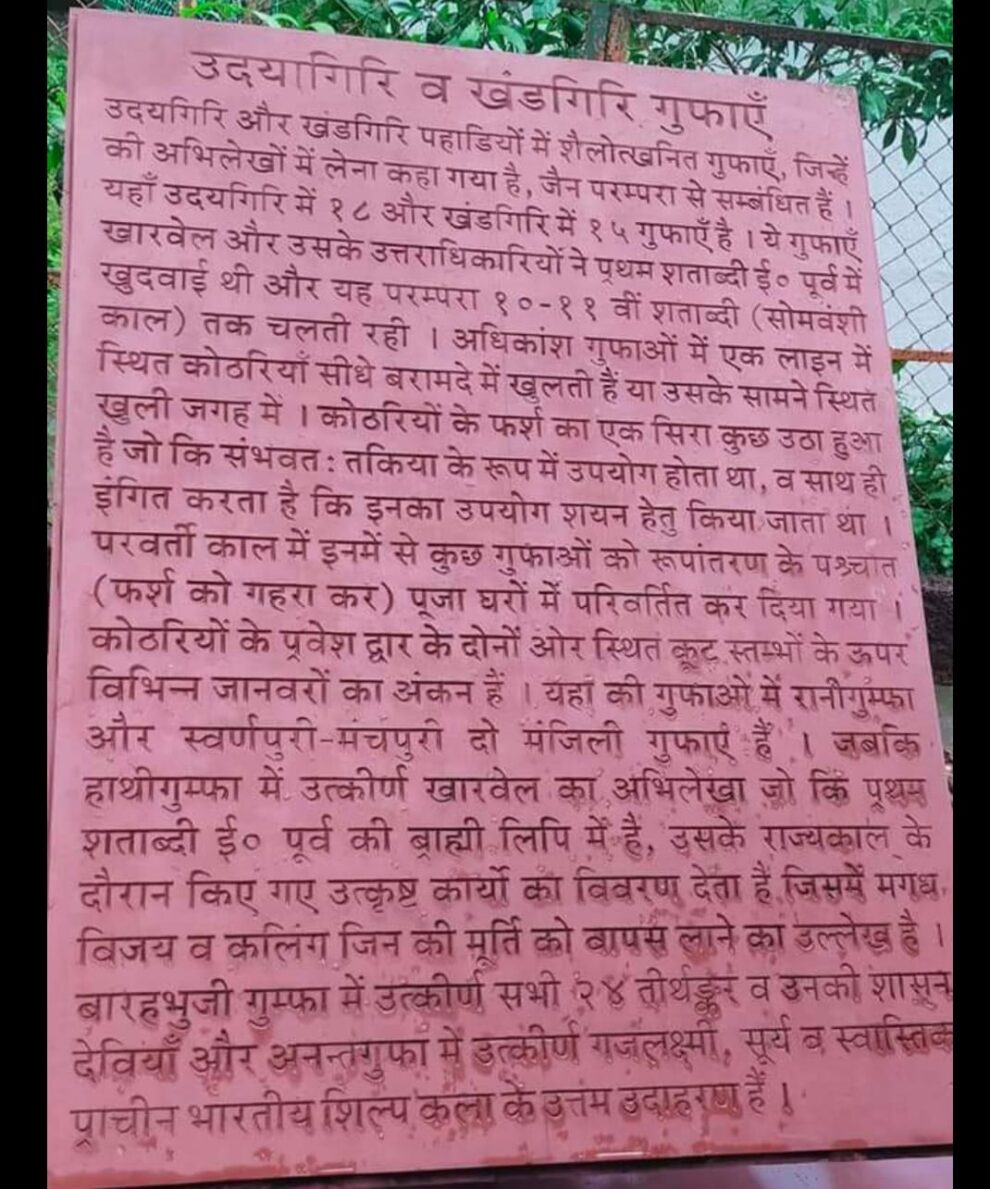 उदयागिरि व खंडगिरि गुफाएँ
उदयगिरि और खंडगिरि पहाडियों में शैलोत्खनित गुफाएँ, जिन्हें
की अभिलेखों में लेना कहा गया है, जैन परम्परा से सम्बंधित हैं ।
यहाँ उदयगिरि में १८ और खंडगिरि में १५ गुफाएँ है । ये गुफाएँ
खारवेल और उसके उत्तराधिकारियों ने प्रथम शताब्दी ई० पूर्व में
खुदवाई थी और यह परम्परा १०-११ वीं शताब्दी (सोमवंशी
काल) तक चलती रही । अधिकांश गुफाओं में एक लाइन में
स्थित कोठरियाँ सीधे बरामदे में खुलती हैं या उसके सामने स्थित
खुली जगह में । कोठरियों के फर्श का एक सिरा कुछ उठा हुआ
है जो कि संभवत: तकिया के रूप में उपयोग होता था, व साथ ही
इंगित करता है कि इनका उपयोग शयन हेतु किया जाता था ।
परवर्ती काल में इनमें से कुछ गुफाओं को रूपांतरण के पश्चात
(फर्श को गहरा कर) पूजा घरों में परिवर्तित कर दिया गया ।
कोठरियों के प्रवेश द्वार के दोनों ओर स्थित कूट स्तम्भों के ऊपर
विभिन्न जानवरों का अंकन हैं । यहां की गुफाओं में रानीगुम्फा
और स्वर्णपुरी-मंचपुरी दो मंजिली गुफाएं हैं । जबकि
हाथीगुम्फा में उत्कीर्ण खारवेल का अभिलेखा जो कि प्रथम
शताब्दी ई० पूर्व की ब्राह्मी लिपि में है, उसके राज्यकाल के
दौरान किए गए उत्कृष्ट कार्यो का विवरण देता है जिसमें मगध
विजय व कलिंग जिन की मूर्ति को वापस लाने का उल्लेख है ।
बारहभुजी गुम्फा में उत्कीर्ण सभी २४ तीर्थङ्कर व उनकी शासन
देवियाँ और अनन्तगुफा में उत्कीर्ण गजलक्ष्मी, सूर्य व स्वास्तिक
प्राचीन भारतीय शिल्प कला के उत्तम उदाहरण हैं ।